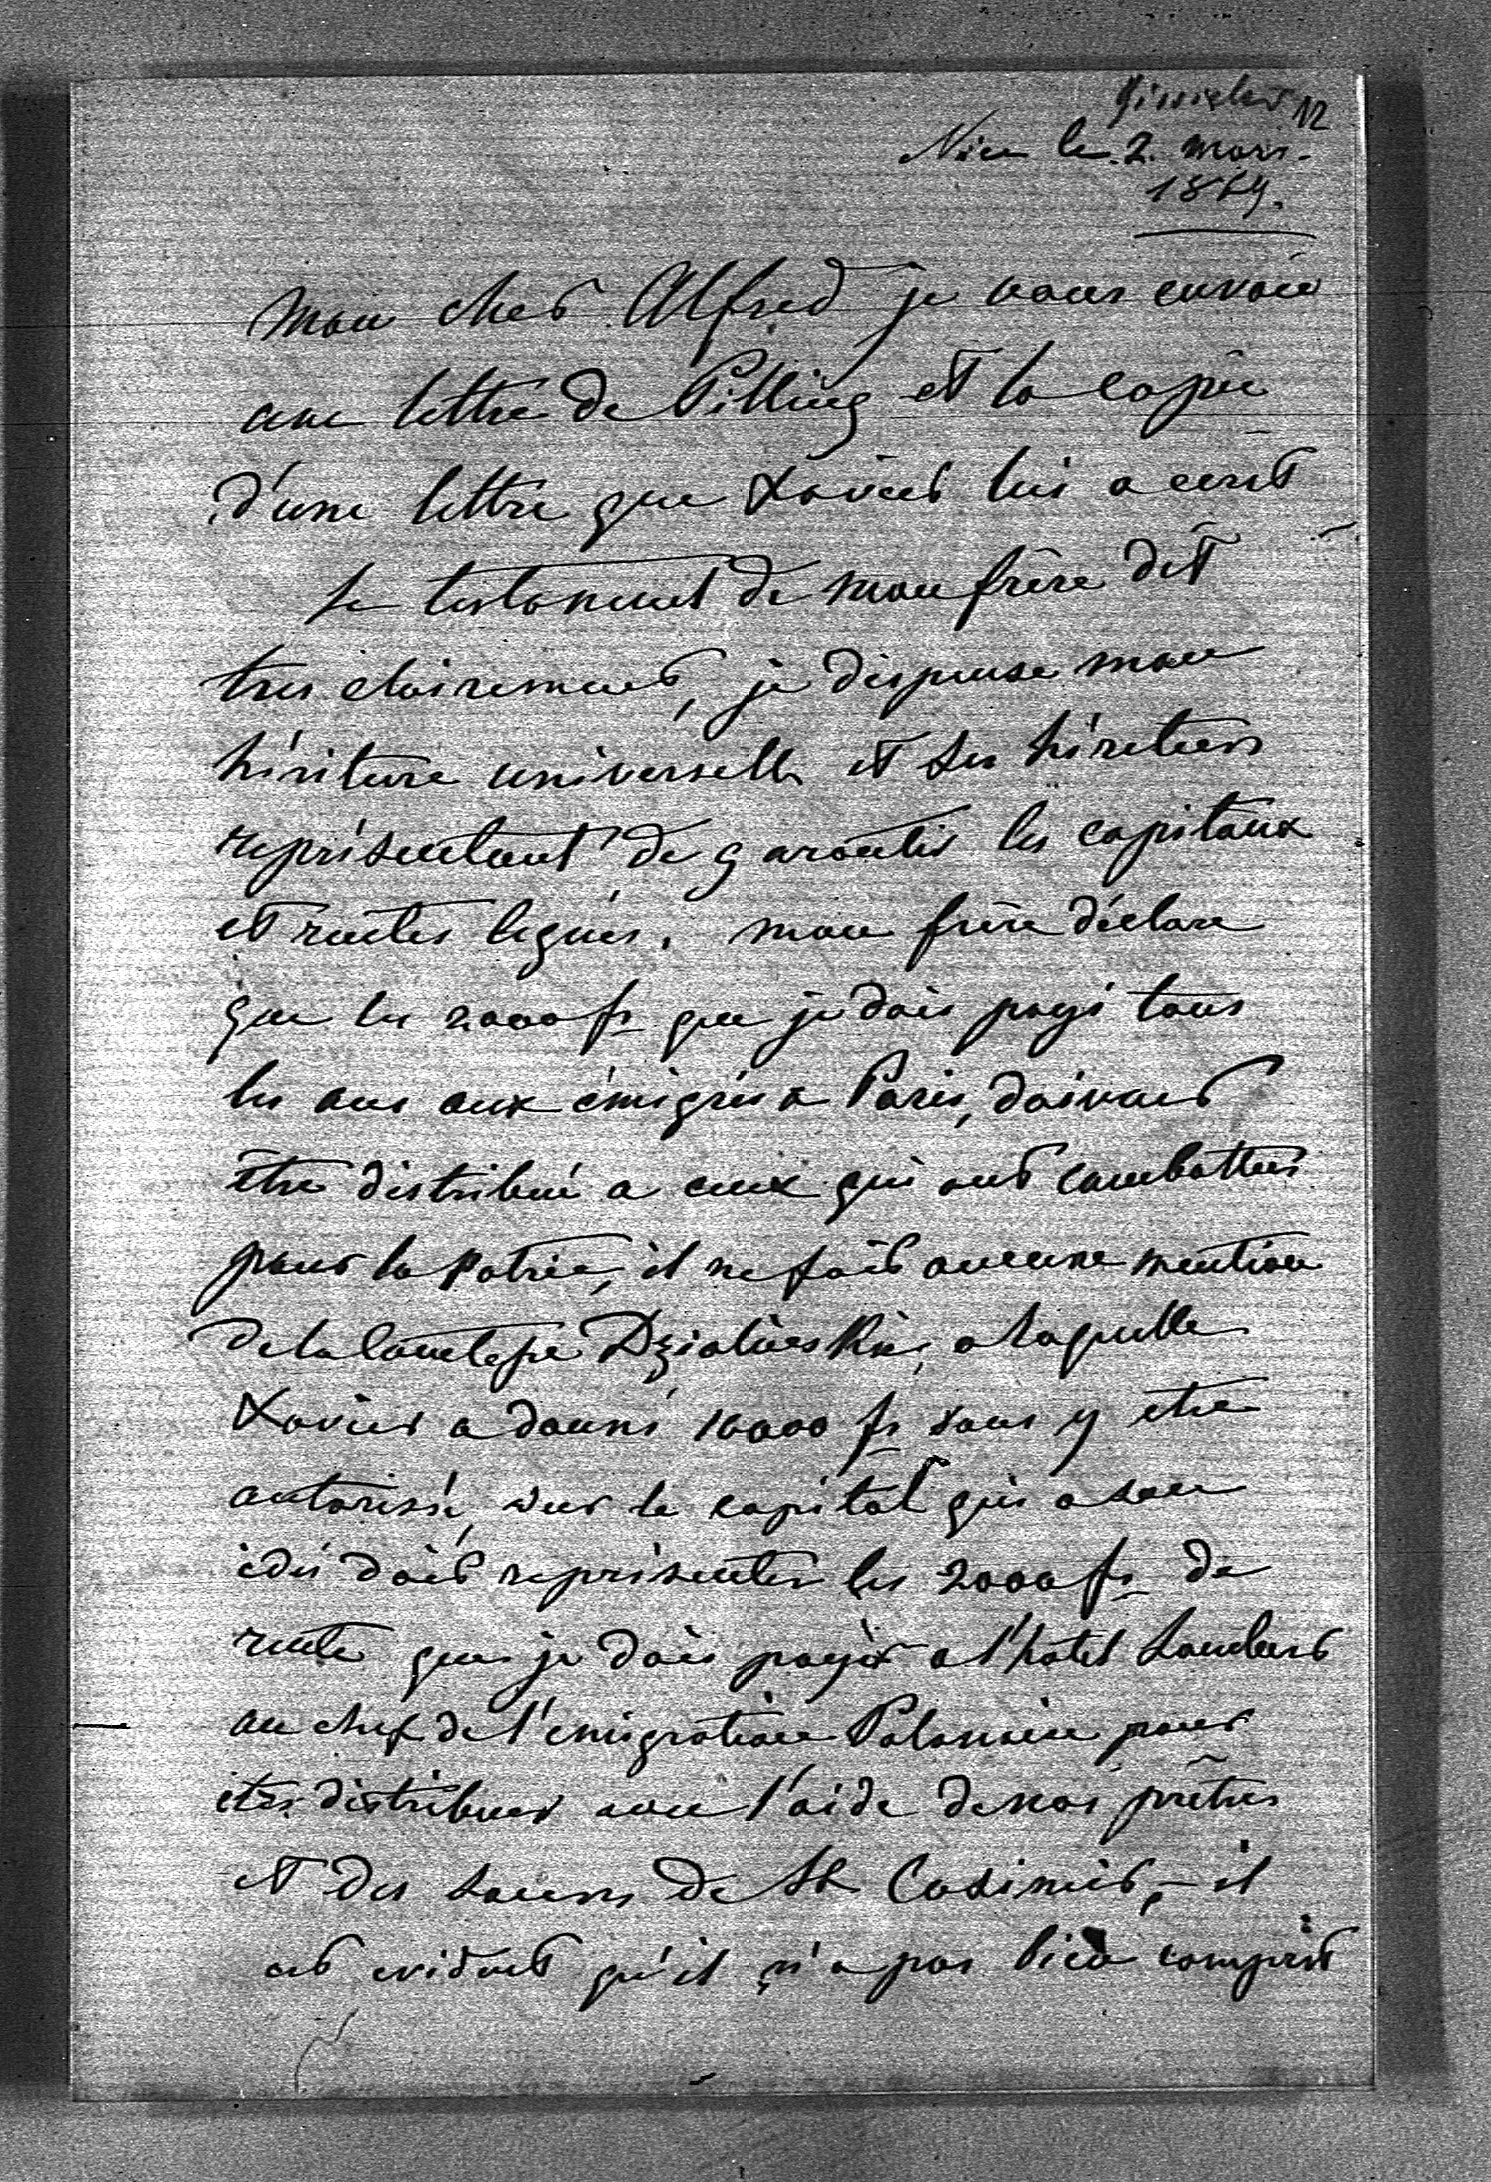 12
Nice le 2. mars.
1869.
Mon cher Alfred je vous envoie
une lettre de Pilling et la copie
d'une lettre que Xavier lui a ecrit
Le testament de mon frère dit
tres clairement, je dispense mon
héritiere universelle et ses héretiers
représentant de garantir les capitaux
et rentes legués. mon frère déclare
que les 2000 fr que je dois payé tous
les ans aux émigrés a Paris, doivent
être distribué a ceux qui ont combattus
pour la patrie, il ne fait aucune mention
de la Comtesse Dzialinska, a laquelle
Xavier a donné 10000 fr sans y etre
autorisé, sur le capital qui a son
idés doit représenter les 2000 fr de
rente que je dois payér a l'hotel Lambert
au chef de l'emigration Polonaise pour
etre distribuer avec l'aide de nos prêtres
et des soeurs de St Casimir, – il
est evident qu'il n'a pas bien compris